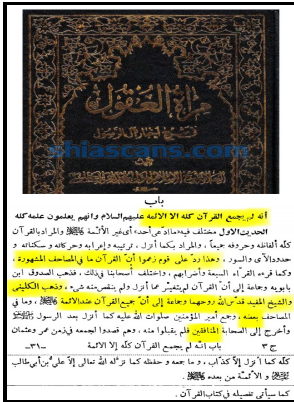 مرآة العقول
في شرح أخبار آل الرسول
shiascans.com
باب
أنه لم يجمع القرآن كله الا الائمة عليهم السلام وانهم يعلمون علمه كله
الحديث الاول مختلف فيه «ما ادّعى أحد» أى غير الأئمة والمراد بالقرآن
كلّه ألفاظه وحروفه جميعاً ، والمراد بكما أنزل ، ترتيبه وإعرابه وحركاته وسكناته و
حدود الآي والسور ، وهذا ردّ على قوم زعموا أنّ القرآن ما في المصاحف المشهورة ،
وكما قرءه القراء السبعة وأضرابهم ، واختلف أصحابنا في ذلك ، فذهب الصدوق ابن
بابويه وجماعة إلى أنّ القرآن لم يتغيّر عمّا أنزل ولم ينقص منه شيء ، وذهب الكليني
والشيخ المفيد قدس الله روحهما وجماعة إلى أنّ جميع القرآن عند الائمة ، وما في
المصاحف بعضه ، وجمع أمير المؤمنين صلوات الله عليه كما أنزل بعد الرسول
وأخرج إلى الصحابة المنافقين فلم يقبلوا منه ، وهم قصدوا لجمعه في زمن عمر وعثمان
ج ٣ باب انه لم يجمع القرآن كله إلا الائمة -٣١-
كلّه كما أنزل إلاّ كذّاب ، و ما جمعه و حفظه كما نزّله الله تعالى إلاّ عليّ بن أبي طالب
و الأئمّة من بعده .
كما سيأتى تفصيله فى كتاب القرآن .